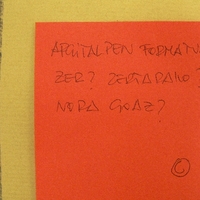 ARGITALPEN FORMATU
ZER? ZERTARAKO?
NORA GOAZ?